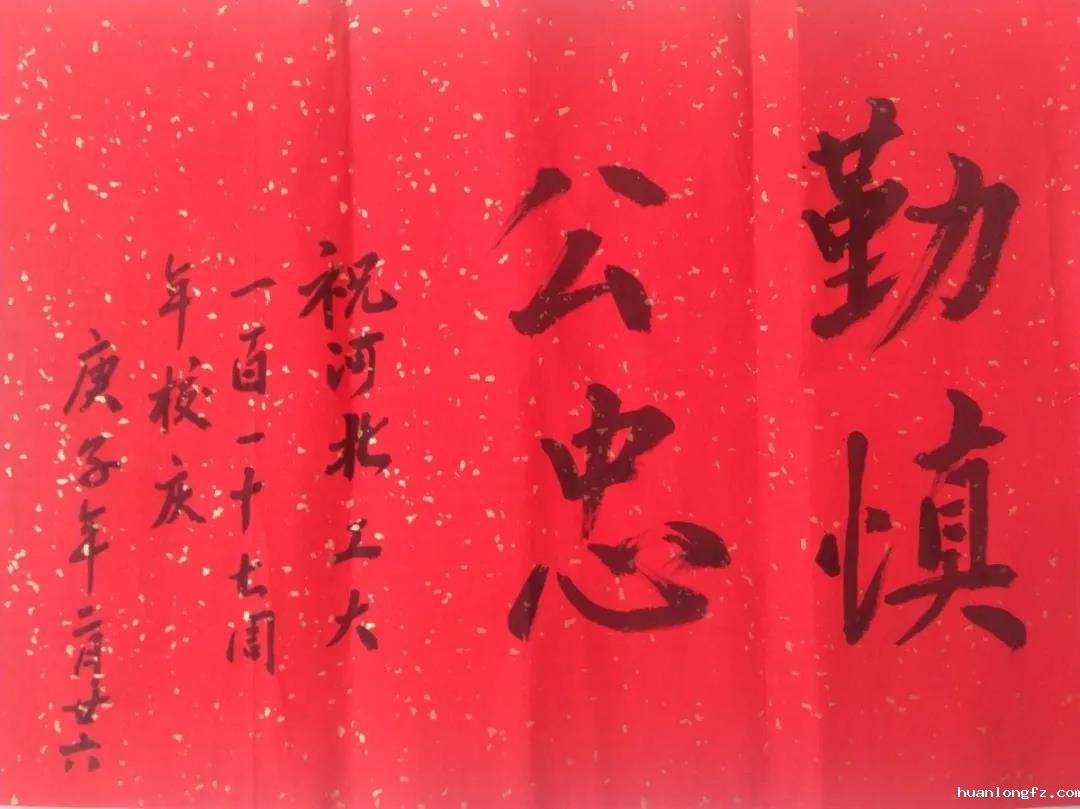 勤慎
公忠
祝河北工大
一百一十七周
年校庆
庚子年二月廿六
huanlongfz.com